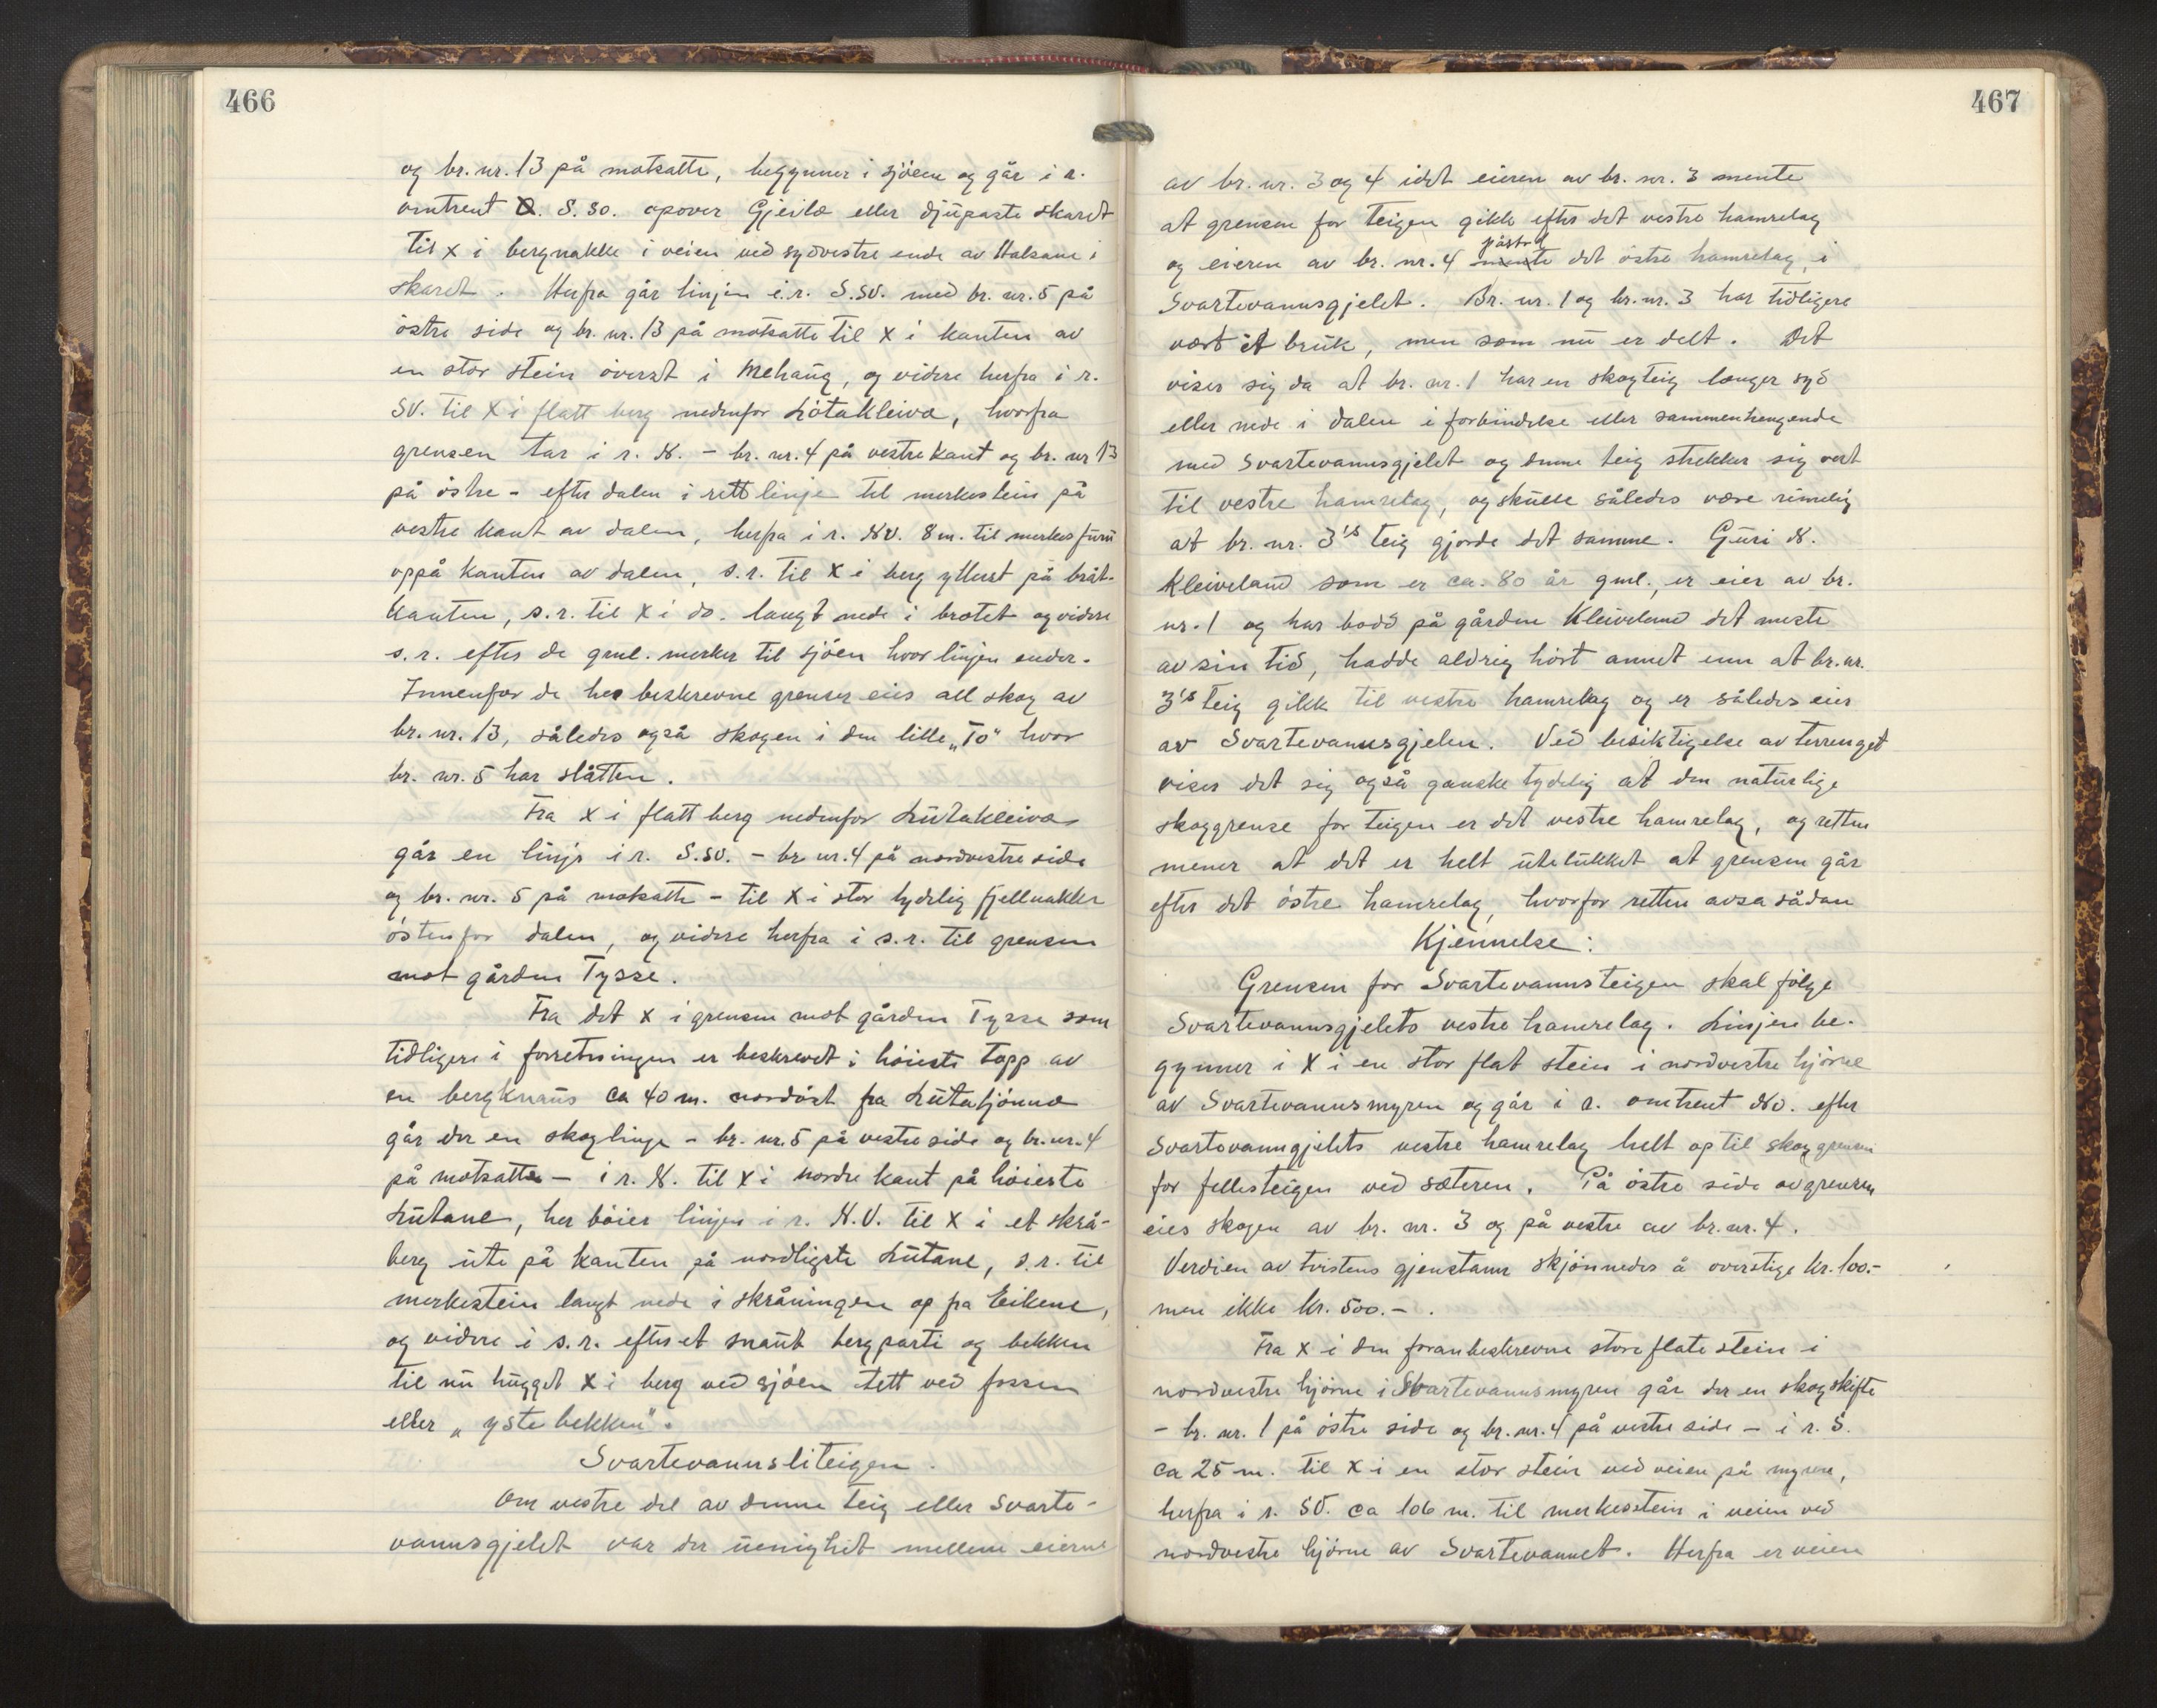 466
og br. nr. 13 på motsatte, begynner i sjöen og går i r.
omtrent S. SO. opover Gjeila eller djupaste skaret
til x i bergnakke i veien ved sydvestre ende av Halsane i
skaret. Herfra går linjen i r. S.SV. med br. nr. 5 på
östre side og br. nr. 13 på motsatte til x i kanten av
en stor stein överst i Mehaug, og videre herfra i r.
SV. til x i flatt berg nedenfor Lötakleiva, hvorfra
grensen tar i r. N. - br. nr. 4 på vestre kant og br. nr 13
på östre - efter dalen i rett linje til merkestein på
vestre kant av dalen, herfra i r. NV. 8 m. til merkesfuru
oppå kanten av dalen, s.r. til x i berg ytterst på bråt-
kanten, s.r. til x i do. langt nede i brotet og videre
s.r. efter de gml. merker til sjöen hvor linjen ender.
Innenfor de her beskrevne grenser eies all skog av
br. nr. 13, således også skogen i den lille „To" hvor
br. nr. 5 har slåtten.
Fra x i flatt berg nedenfor Lutakleiva
går en linje i r. S.SV. - br nr. 4 på nordvestre side
og br. nr. 5 på motsatte - til x i stor tydelig fjellnakke
östenfor dalen, og videre herfra i s.r. til grensen
mot gården Tysse.
Fra det x i grensen mot gården Tysse som
tidligere i forretningen er beskrevet i höieste topp av
en bergknaus ca 40 m. nordöst fra Lutatjönna
går der en skoglinje - br. nr. 5 på vestre side og br. nr. 4
på motsatte - i r. N. til x i nordre kant på höieste
Lutane, her böier linjen i r. N.V. til x i et skrå-
berg ute på kanten på nordligste Lutane, s.r. til
merkestein langt nede i skråningen op fra Eikene,
og videre i s.r. efter et snaut bergparti og bekken
til nu hugget x i berg ved sjöen tett ved fossen
eller „yste bekken".
Svartevannsliteigen.
Om vestre del av denne teig eller Svarte-
vannsgjelet var der uenighet mellem eierne
467
av br. nr. 3 og 4 idet eieren av br. nr. 3 mente
at grensen for teigen gikk efter det vestre hamrelag
påstod
og eieren av br. nr. 4 mente det östre hamrelag, i
Svartevannsgjelet. Br. nr. 1 og br. nr. 3 har tidligere
vært et bruk, men som nu er delt. Det
viser sig da at br. nr. 1 har en skogteig lenger syd
eller nede i dalen i forbindelse eller sammenhengende
med Svartevannsgjelet og denne teig strekker sig vest
til vestre hamrelag, og skulle således være rimelig
at br. nr. 3's teig gjorde det samme. Guri N.
Kleiveland som er ca. 80 år gml., er eier av br.
nr. 1 og har bodd på gården Kleiveland det meste
av sin tid, hadde aldrig hört annet enn at br. nr.
3's teig gikk til vestre hamrelag og er således eier
av Svartevannsgjelen. Ved besiktigelse av terrenget
viser det sig også ganske tydelig at den naturlige
skoggrense for teigen er det vestre hamrelag, og retten
mener at det er helt utelukket at grensen går
efter det östre hamrelag, hvorfor retten avsa sådan
Kjennelse:
Grensen for Svartevannsteigen skal fölge
Svartevannsgjelets vestre hamrelag. Linjen be-
gynner i x i en stor flat stein i nordvestre hjörne
av Svartevannsmyren og går i r. omtrent NO. efter
Svartevanngjelets vestre hamrelag helt op til skoggrensen
for fellesteigen ved sæteren. På östre side av grensen
eies skogen av br. nr. 3 og på vestre av br. nr. 4.
Verdien av tvistens gjenstann skjönnedes å overstige kr. 100.-
men ikke kr. 500.-.
Fra x i den foranbeskrevne store flate stein i
nordvestre hjörne i Svartevannsmyren går der en skogskifte
- br. nr. 1 på östre side og br. nr. 4 på vestre side - i r. S.
ca 25 m. til x i en stor stein ved veien på myren,
herfra i r. SV. ca 106 m. til merkesstein i veien ved
nordvestre hjörne av Svartevannet. Herfra er veien